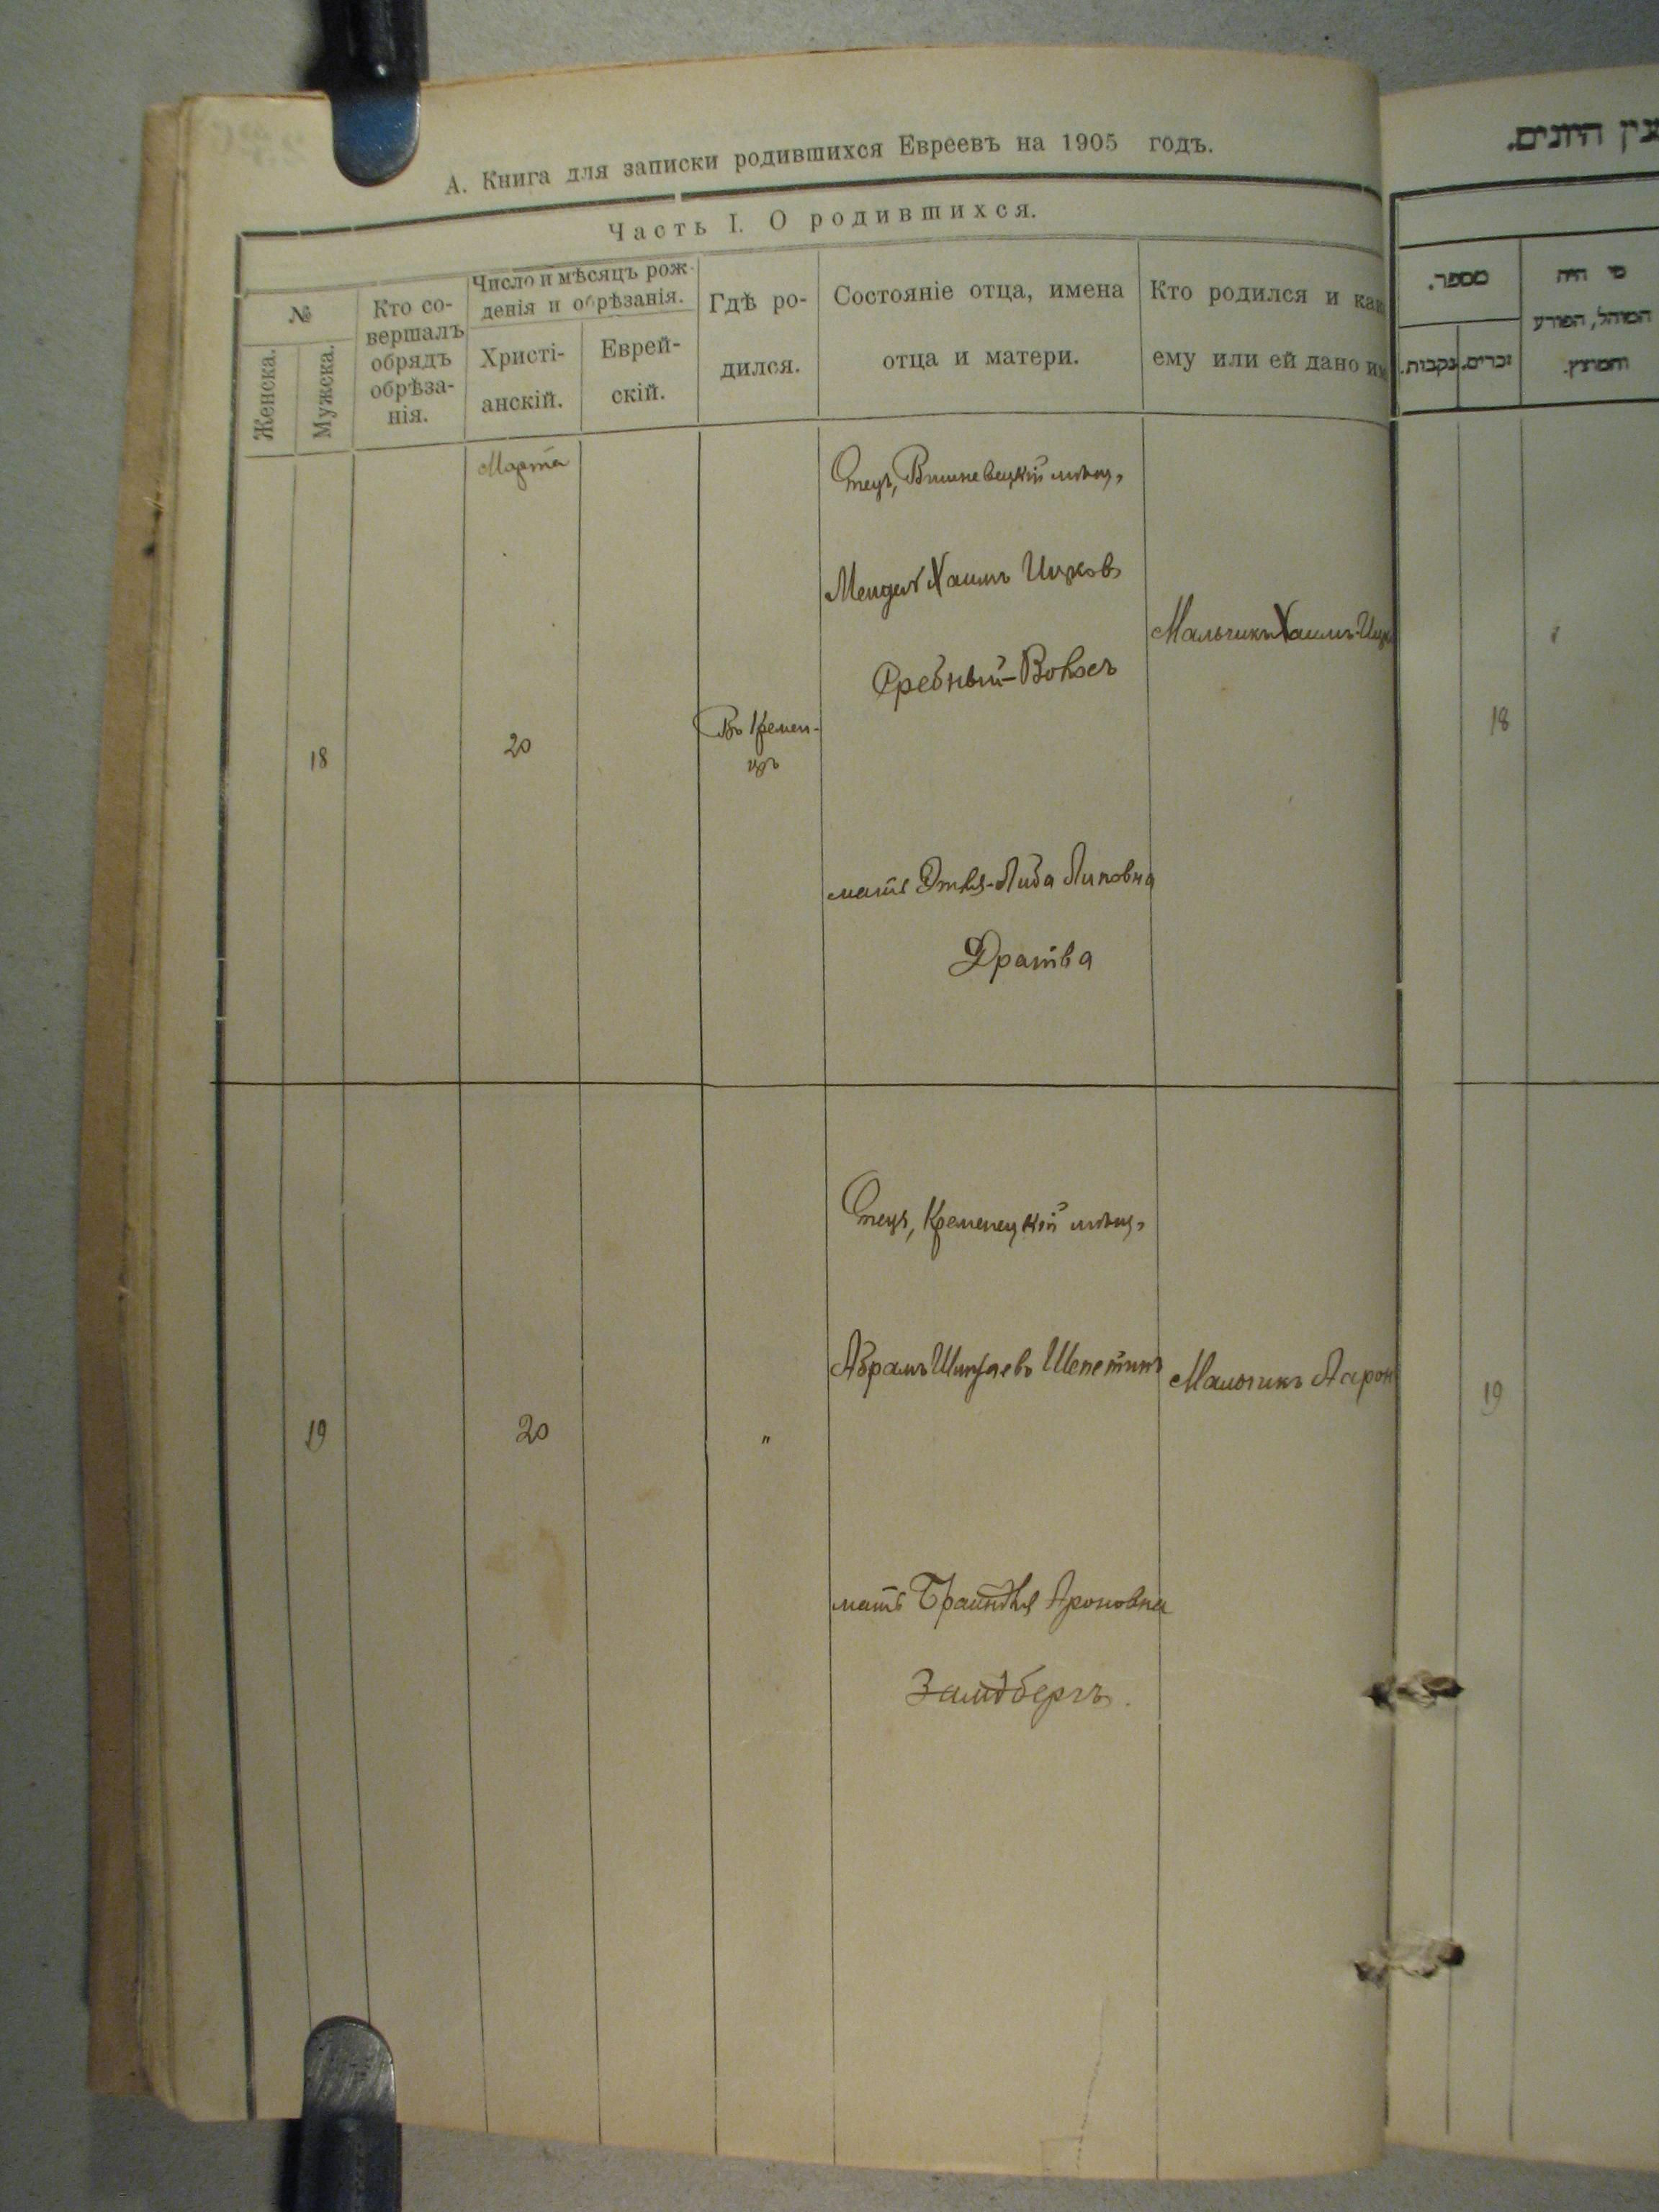 А. Книга для записки родившихся Евреевъ на 1905 годъ.
Часть I. О родившихся.
№
Женска.
Мужска.
Кто со-
вершалъ
обрядъ
обрѣза-
нія.
Число и мѣсяцъ рож-
денія и обрѣзанія.
Христі-
анскій.
Еврей-
скій.
Гдѣ ро-
дился.
Состояніе отца, имена
отца и матери.
Кто родился и как
ему или ей дано им
Марта
18
20
Въ Кремен-
цѣ
Отецъ, Вишневецкій мѣщ.
Мендель Хаимъ Ицков
Сребный-
мать Этля-Либа Липовна
Дратва
Мальчикъ Хаимъ-Ицк
19
20
"
Отецъ, Кременецкій мѣщ.
Абрамъ Шепетинъ
мать Браиндля Ароновна
Заидбергъ.
Мальчикъ Аарон
מספר.
זכרים.
נקבות.
מי היה
המוהל, הפורע
והמוצץ.
18
19